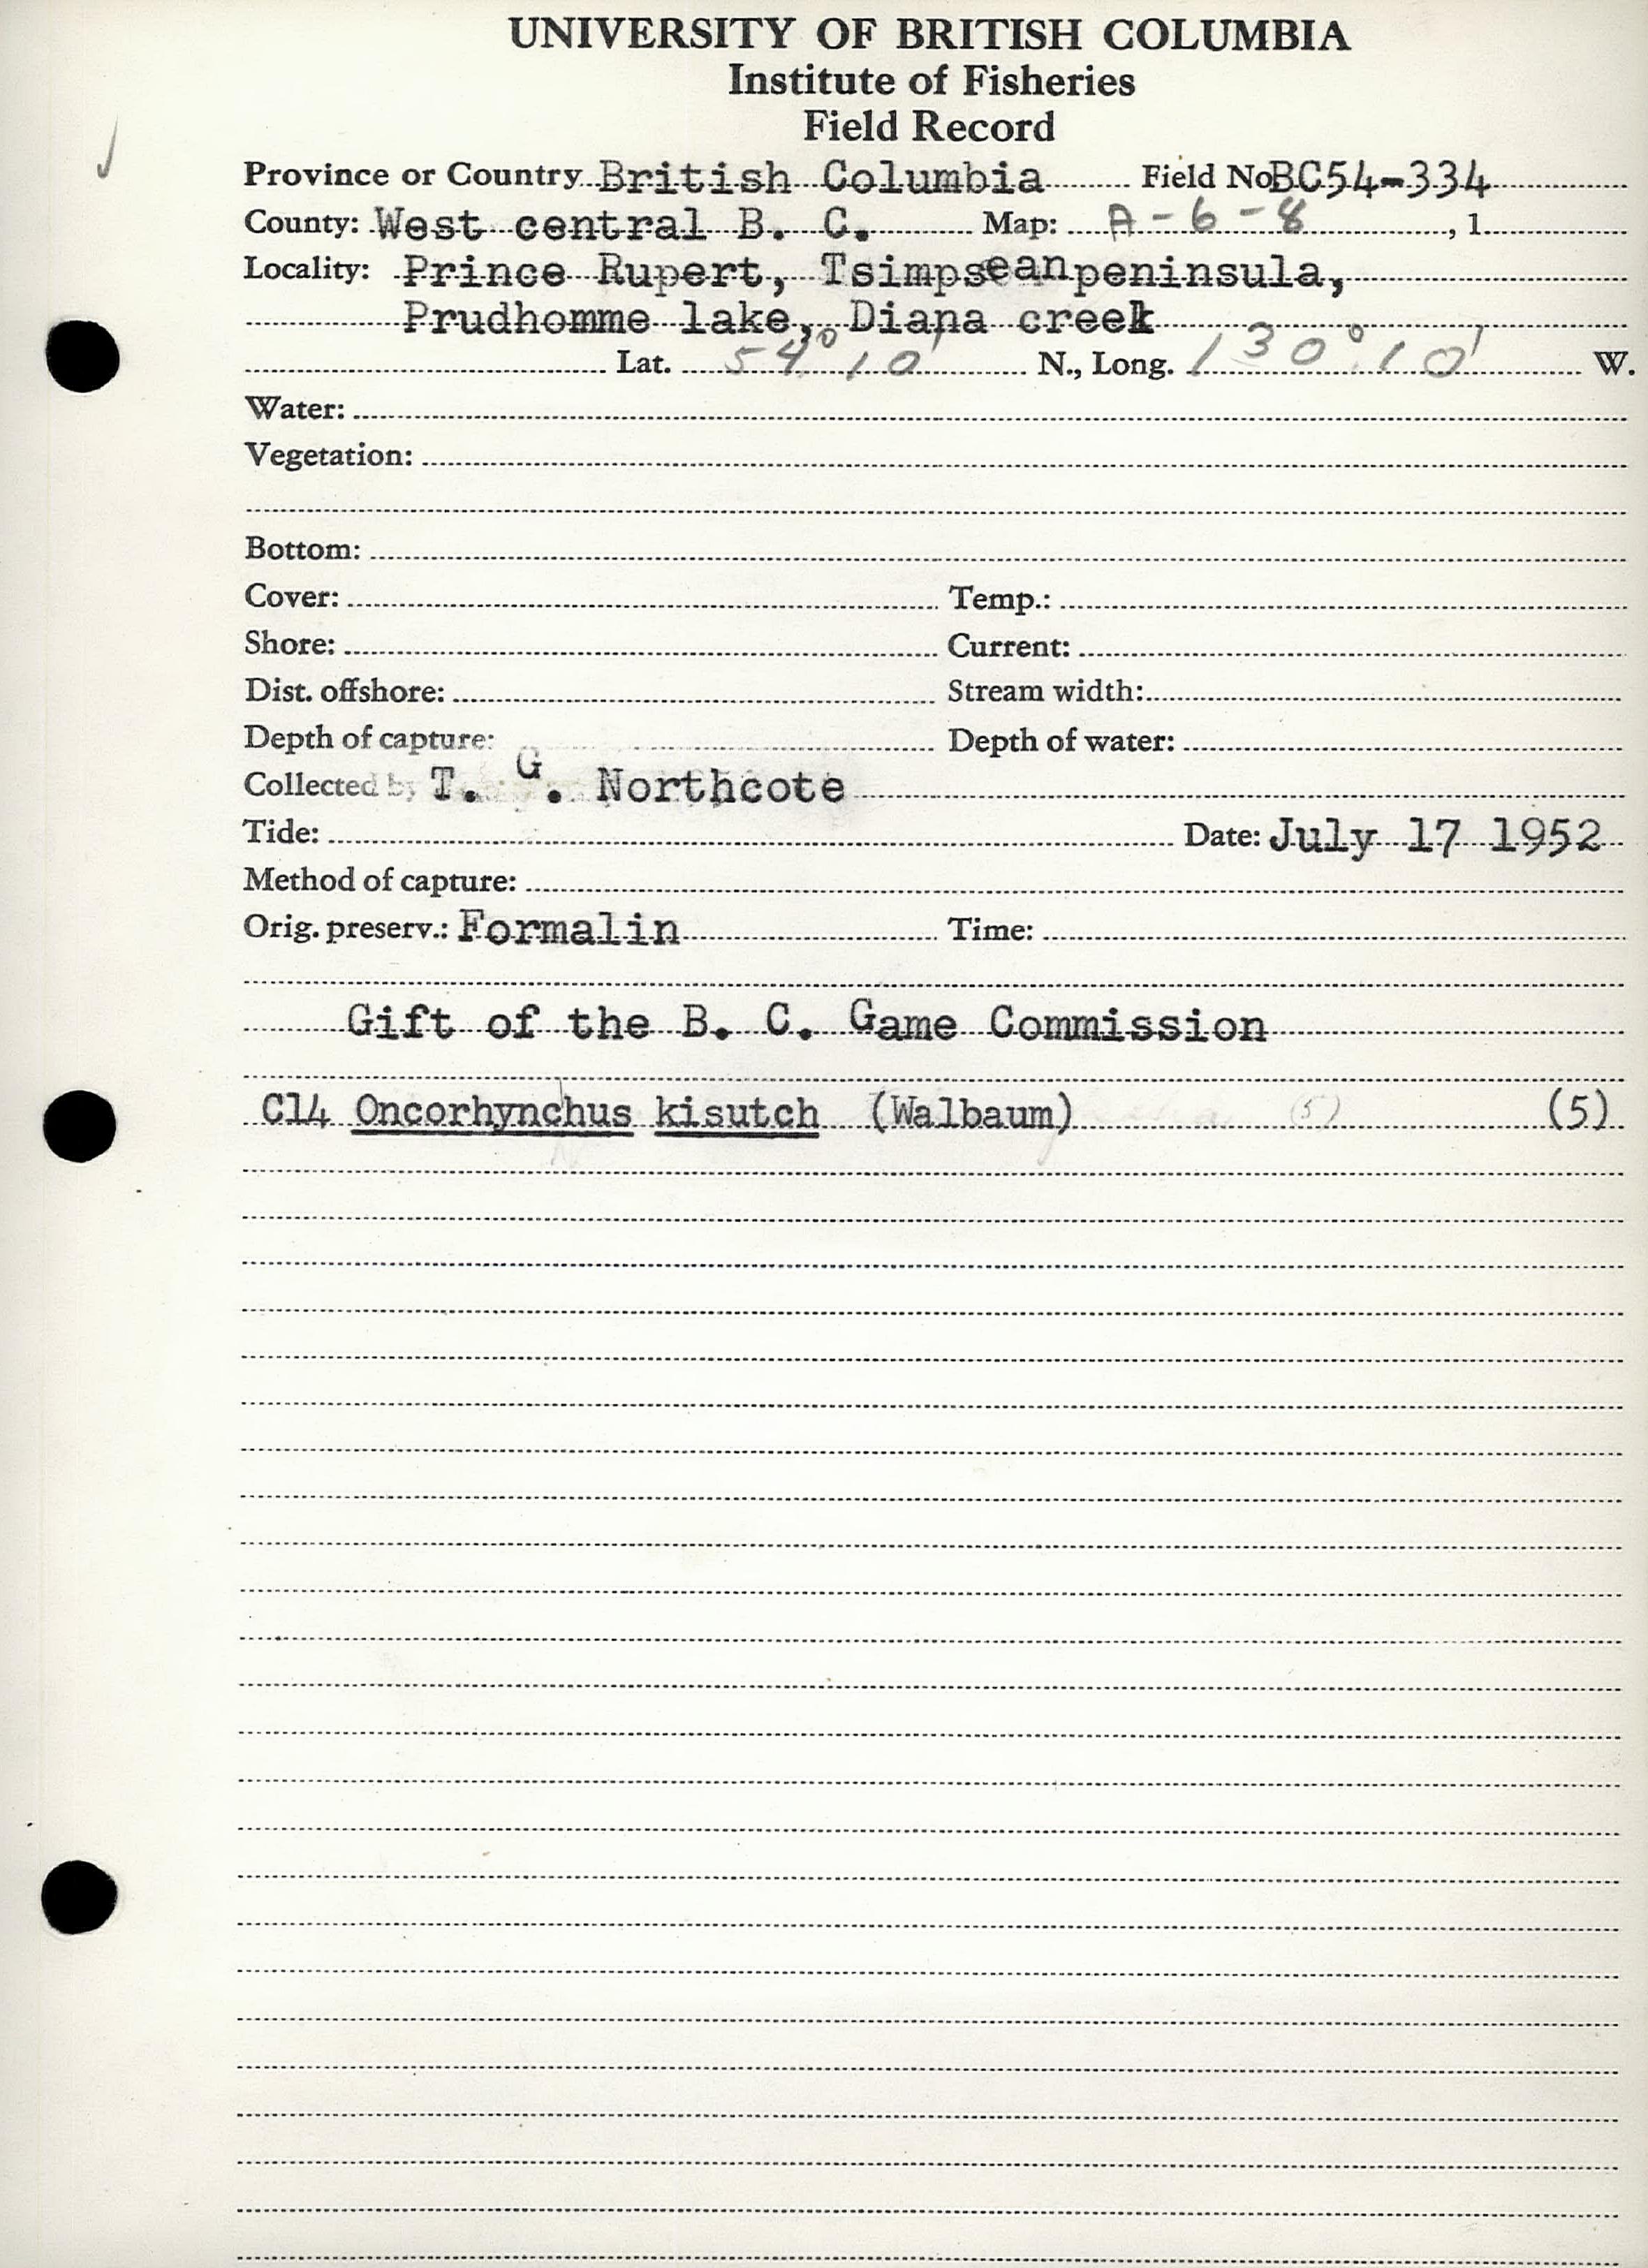 UNIVERSITY OF BRITISH COLUMBIA
Institute of Fisheries
Field Record
Province or Country British Columbia Field No. BC54-334
County: West central B. C. Map: A-6-8, 1.
Locality: Prince Rupert, Tsimpsean peninsula,
Prudhomme lake, Diana creek
Lat. 54° 10' N., Long. 130° 10' W.
Water:
Vegetation:
Bottom:
Cover: Temp.:
Shore: Current:
Dist. offshore: Stream width:
Depth of capture: Depth of water:
Collected by T. G. Northcote
Tide: Date: July 17 1952
Method of capture:
Orig. preserv.: Formalin Time:
Gift of the B. C. Game Commission
C14 Oncorhynchus kisutch (Walbaum) (5) (5)